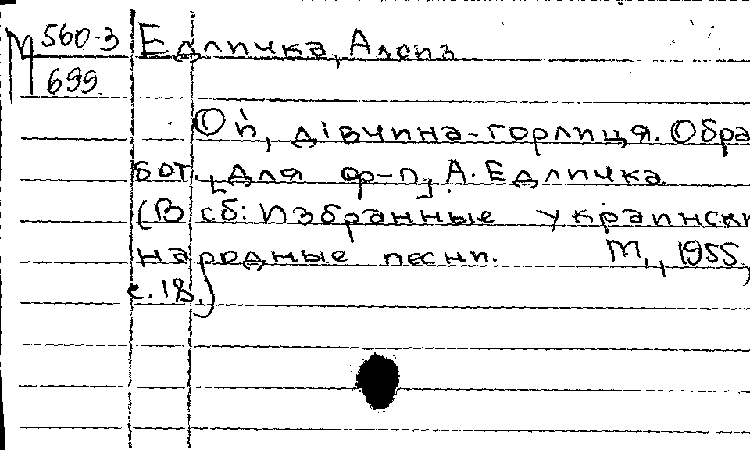 М 560-3
699
Едличка, Алоиз
Ой, дівчина-горлиця. Обра
бот. [для ф-п] А. Едличка
(В сб: Избранные украински
народные песни. М., 1955,
с. 18.)